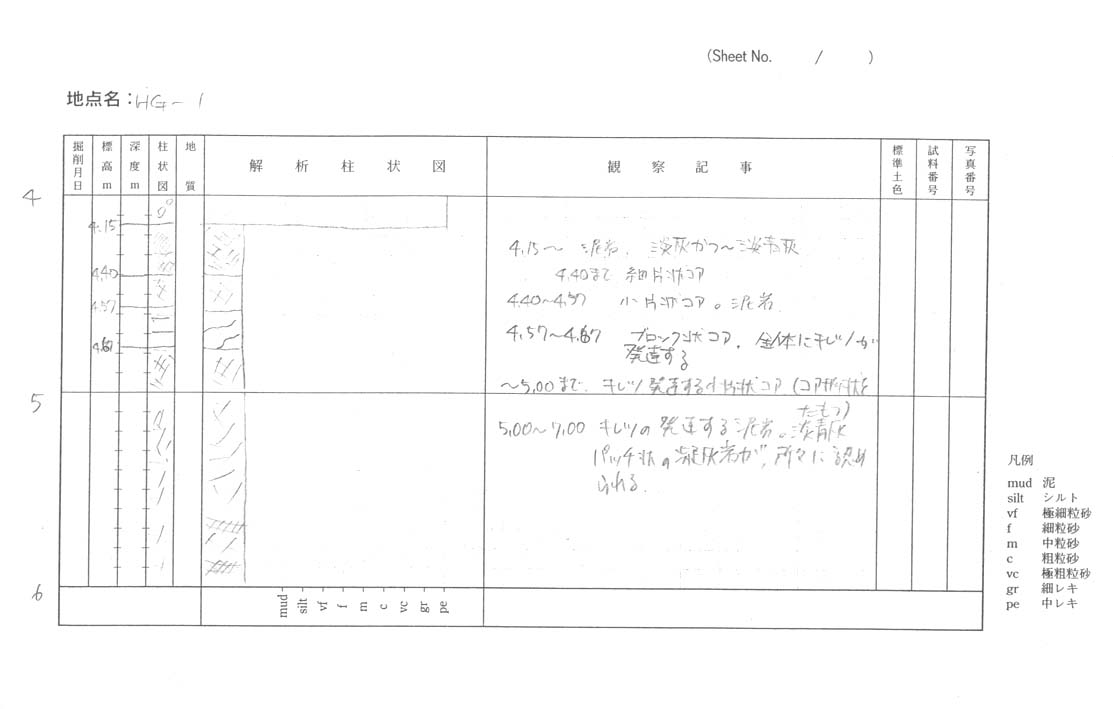 (Sheet No. / )
地点名:HG-1
掘削月日 標高m 深度m 柱状図 地質 解析柱状図 観察記事 標準土色 試料番号 写真番号
4
4.15
4.15～ 泥岩、淡灰かつ～淡青灰
4.40
4.40まで 細片状コア
4.57
4.40～4.57 小片状コア。泥岩
4.67
4.57～4.67 ブロック状コア、全体にキレツが
発達する
～5.00まで、キレツ発達する小片状コア(コア形状を
たもつ)
5
5.00～7.00 キレツの発達する泥岩。淡青灰
パッチ状の凝灰岩が、所々に認め
られる。
6
mud silt vf f m c vc gr pe
凡例
mud 泥
silt シルト
vf 極細粒砂
f 細粒砂
m 中粒砂
c 粗粒砂
vc 極粗粒砂
gr 細レキ
pe 中レキ